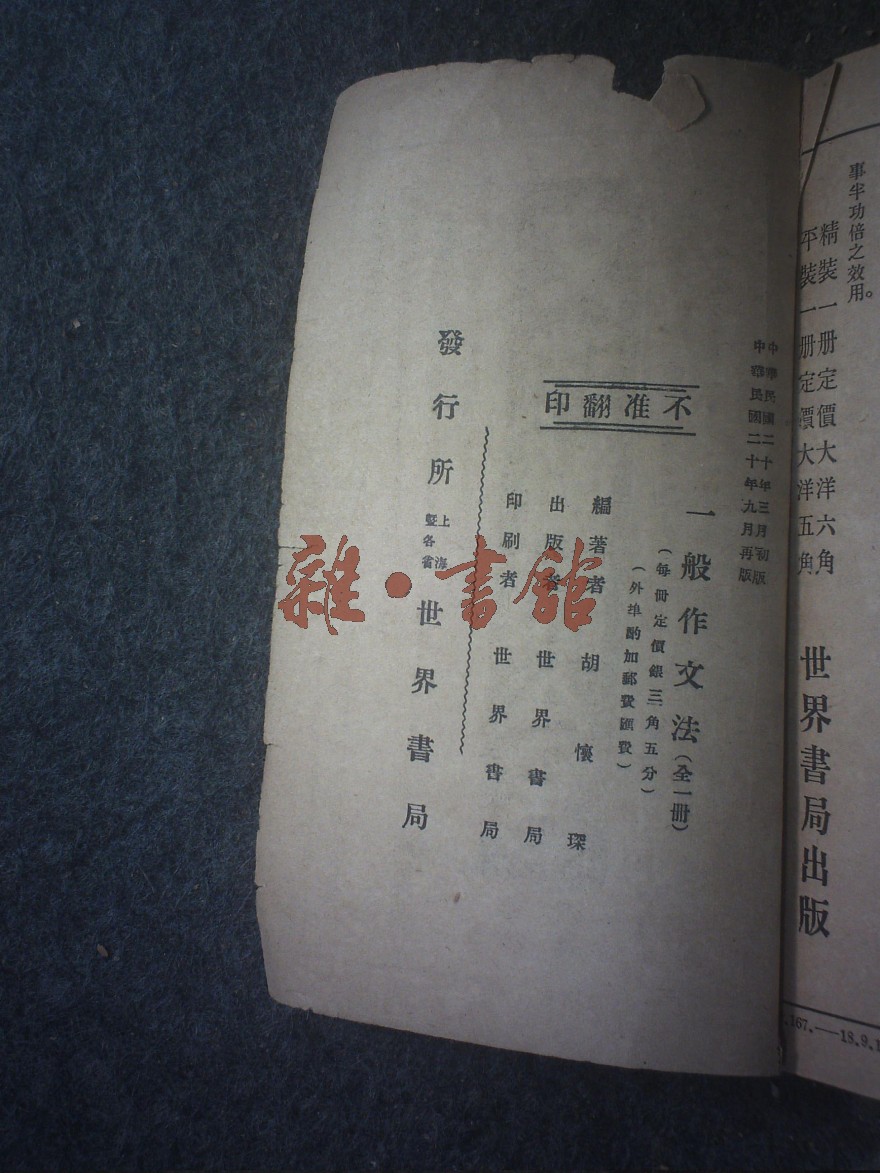 事半功倍之效用。
精裝一册定價大洋六角
平裝一册定價大洋五角
世界書局出版
167.——18.9.1
中華民國二十年三月初版
中華民國二十年九月再版
不准翻印
一般作文法(全一冊)
(每冊定價銀三角五分)
(外埠酌加郵費匯費)
編著者 胡懷琛
出版者 世界書局
印刷者 世界書局
發行所 上海暨各省 世界書局
雜·書館